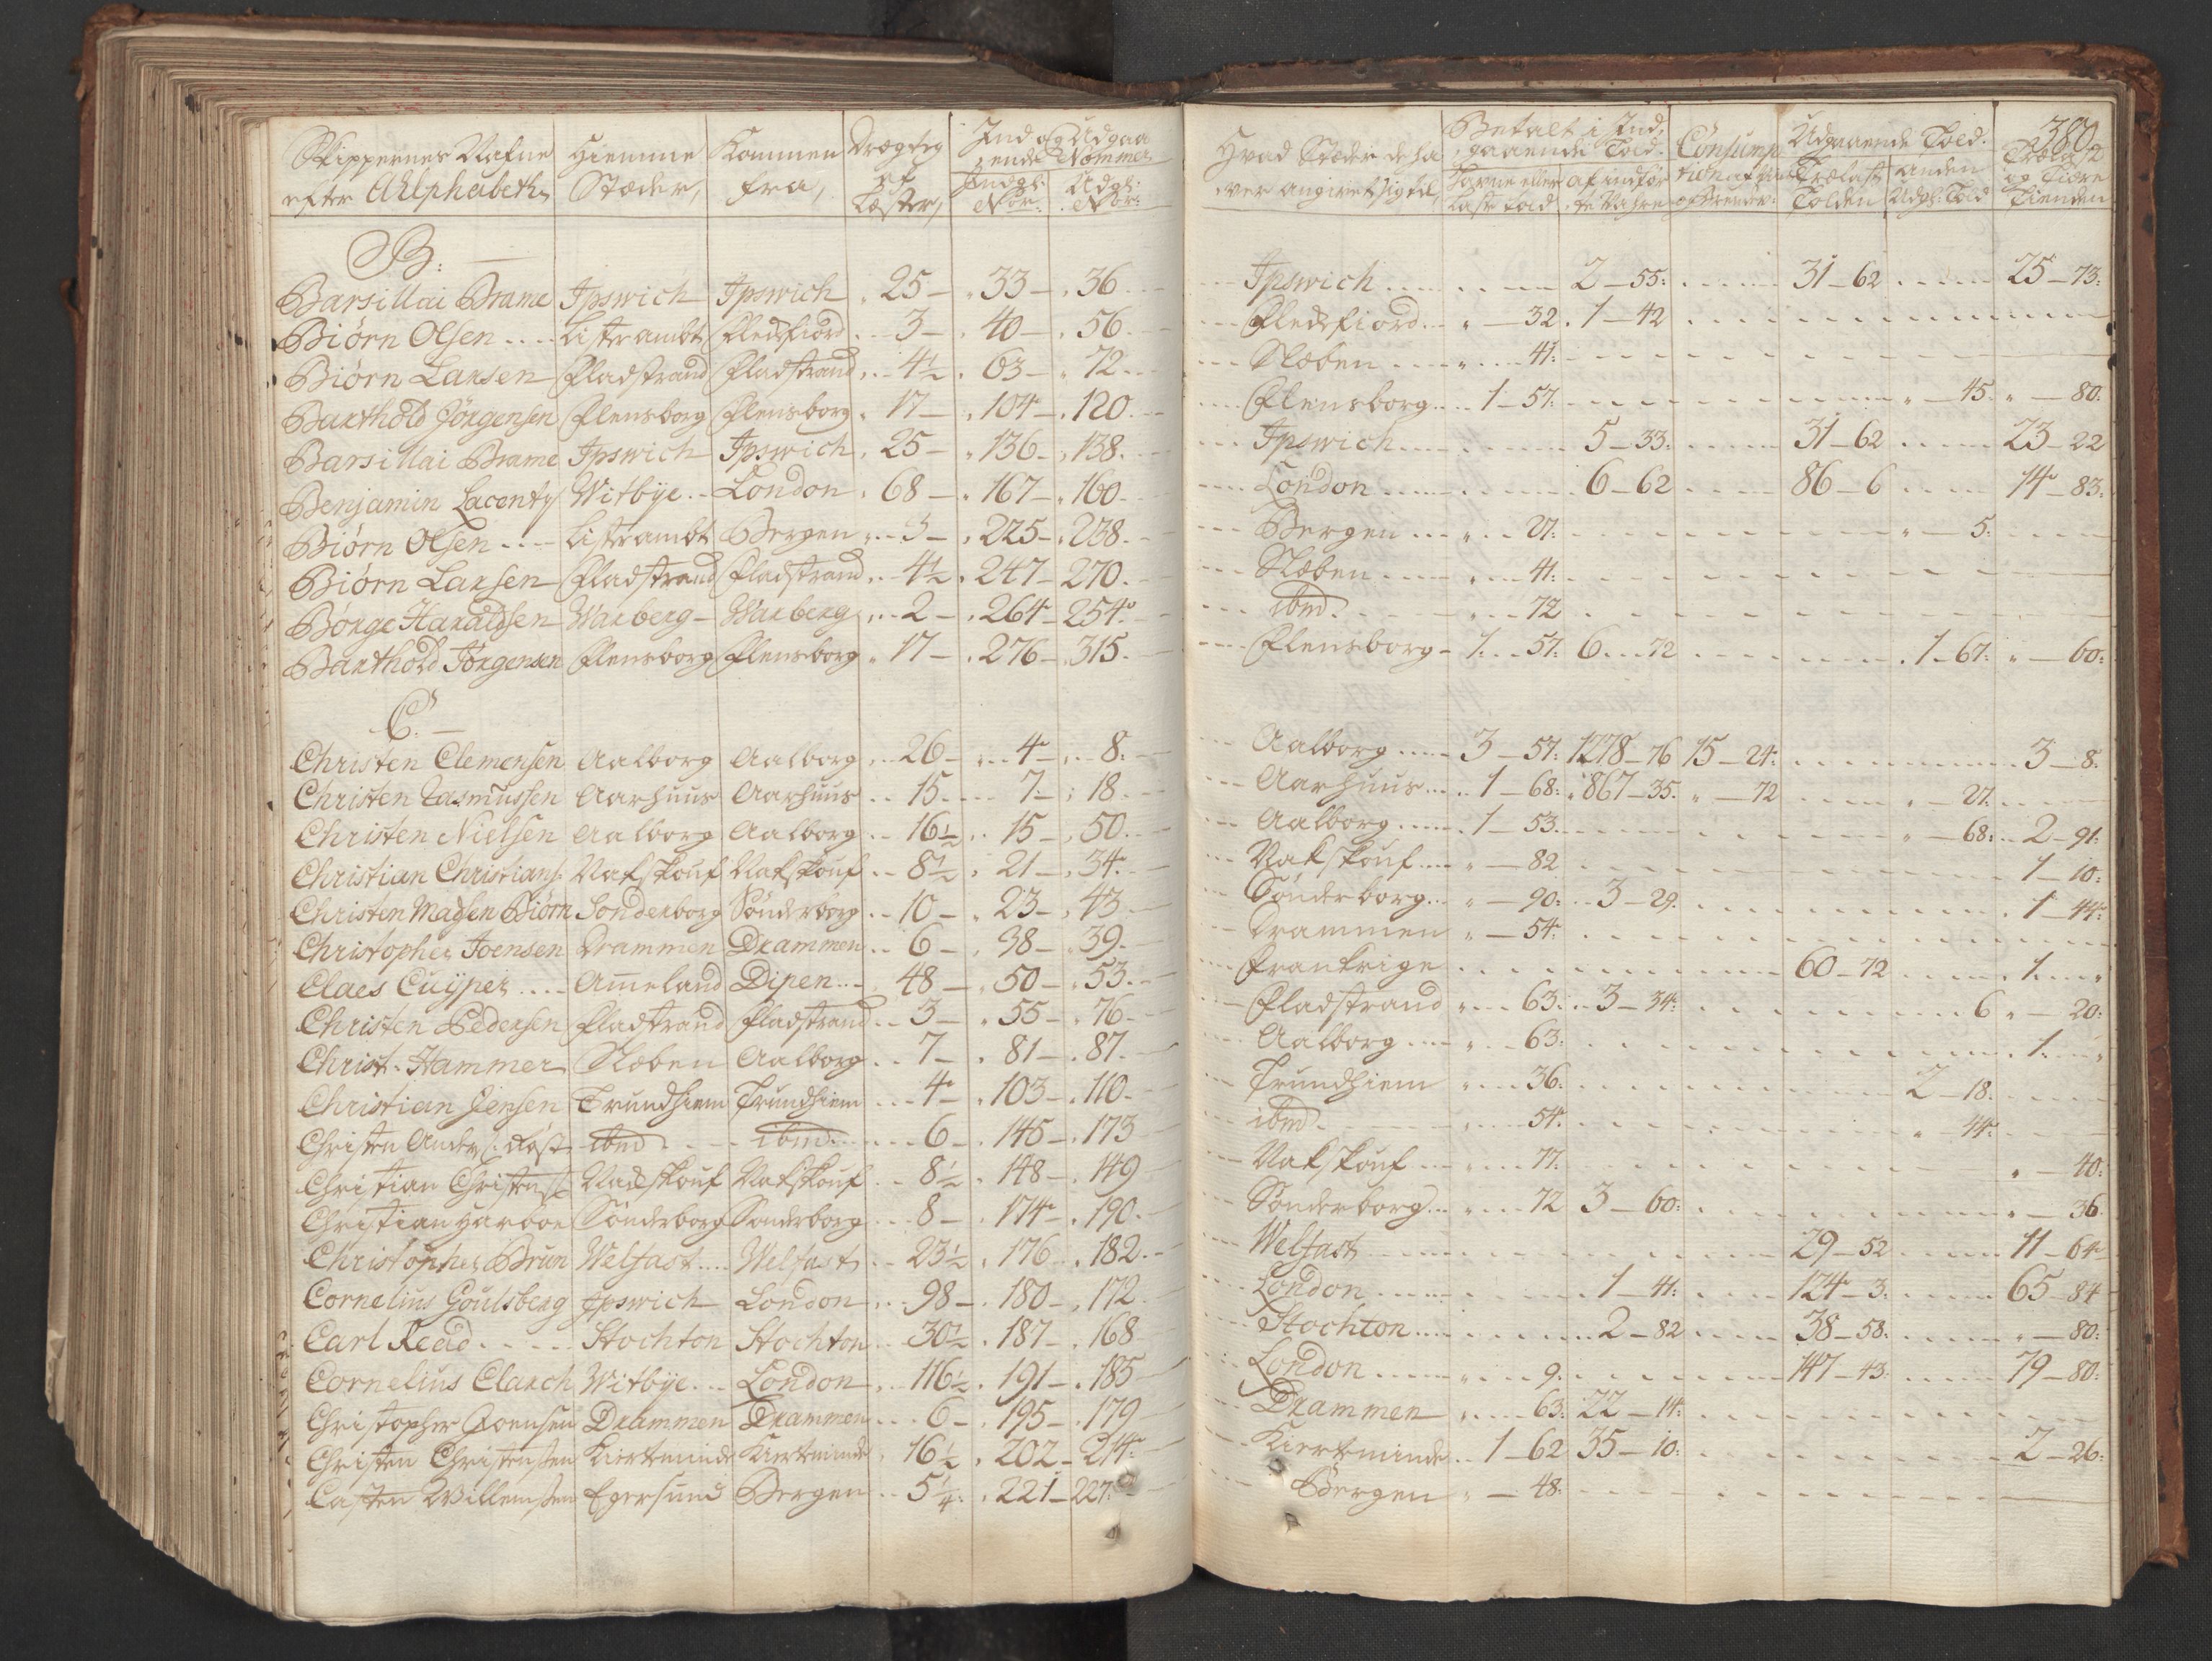 Skippernes Nafne Hiemme Kommen Drægtig Ind og Udgaa
efter Alphabeth, Stæder, fra, af Læster, rende Nommer
Indgl: Nör: Udgl: Nör:
B:
Barsillai Brame Ipswich Ipswich 25 – 33 – 36
Biørn Olsen Listr ambt Fledefiord 3 – 40 – 56
Biørn Larsen Fladstrand Fladstrand 4½ 63 – 72
Barthold Jörgensen Flensborg Flensborg 17 – 104 – 120
Barsillai Brame Ipswich Ipswich 25 – 136 – 138
Benjamin Lacenty Witbye London 68 – 167 – 160
Biørn Olsen Listr ambt Bergen 3 – 225 – 238
Biørn Larsen Fladstrand Fladstrand 4½ 247 – 270
Börge Haraldsen Warberg Warberg 2 – 264 – 254
Barthold Törgensen Flensborg Flensborg 17 – 276 – 315
C.
Christen Clemensen Aalborg Aalborg 26 – 4 – 8
Christen Rasmussen Aarhuus Aarhuus 15 7 – 18
Christen Nielsen Aalborg Aalborg 16½ 15 – 50
Christian Christians: Nakskouf Nakskouf 8½ 21 – 34
Christen Madsen Biörn Sonderborg Sönderborg 10 – 23 – 43
Christopher Joensen Drammen Drammen 6 – 38 – 39
Claes Cuyper Ameland Dipen 48 – 50 – 53
Christen Pedersen Fladstrand Fladstrand 3 – 55 – 76
Christ. Hammer Næben Aalborg 7 – 81 – 87
Christian Jensen Trundhiem Trundhiem 4 103 – 110
Christen Anders: Röst ibid ibid 6 – 145 – 173
Christian Christens: Nakskouf Nakskouf 8½ 148 – 149
Christian Harboe Sönderborg Sonderborg 8 – 174 – 190
Christopher Brun Welfast Welfast 23½ 176 182
Cornelius Goulsberg Ipswich London 98 – 180 – 172
Carl Read Stochton Stochton 30½ 187 – 168
Cornelius Clarch Witbye London 116½ 191 – 185
Christopher Joensen Drammen Drammen 6 – 195 – 179
Christen Christensen Kierteminde Kierteminde 16½ 202 – 214
Casten Willemsen Egersund Bergen 5¼ 221 – 227
380
Hvad Stæder de ha Betalt i Ind, Consump Udgaaende Told. Trælast
ver angivet sig til, gaaende Told. tion af og Tiære
Havne eller af indför Trælast anden Tienden
Laste Told te Vahre Tolden Udgl: Told
Ipswich 2 – 55: 31 – 62 25 – 73:
Fledefiord – 32 1 – 42
Næben 41:
Flensborg 1 – 57: – 45 – 80:
Ipswich 5 – 33: 31 – 62 23 – 22
London 6 – 62 86 – 6 14 – 83:
Bergen 27: – 5:
Næben 41:
ibid. 72
Flensborg 1 57: 6 72 1 – 67: – 60:
Aalborg 3 – 57: 1278 – 76 15 – 24: 3 – 8:
Aarhuus 1 – 68: 867 – 35: – 72 – 27:
Aalborg 1 – 53 – 68: 2 – 91:
Nakskouf – 82 1 – 10:
Sönderborg – 90: 3 – 29: 1 – 44:
Drammen – 54:
Frankrige 60 – 72 1
Fladstrand 63: 3 – 34: 6 – 20:
Aalborg 63: 1
Trundhiem 36: 2 – 18:
ibid 54: – 44:
Nakskouf 77: – 40:
Sønderborg 72 3 – 60: – 36
Welfast 29 – 52 11 – 64
London 1 – 41: 124 – 3: 65 – 84
Stochton 2 – 82 38 – 58: – 80:
London 9 147 – 43: 79 – 80:
Drammen 63: 22 – 14:
Kierteminde 1 – 62 35 – 10: 2 – 26:
Bergen – 48: